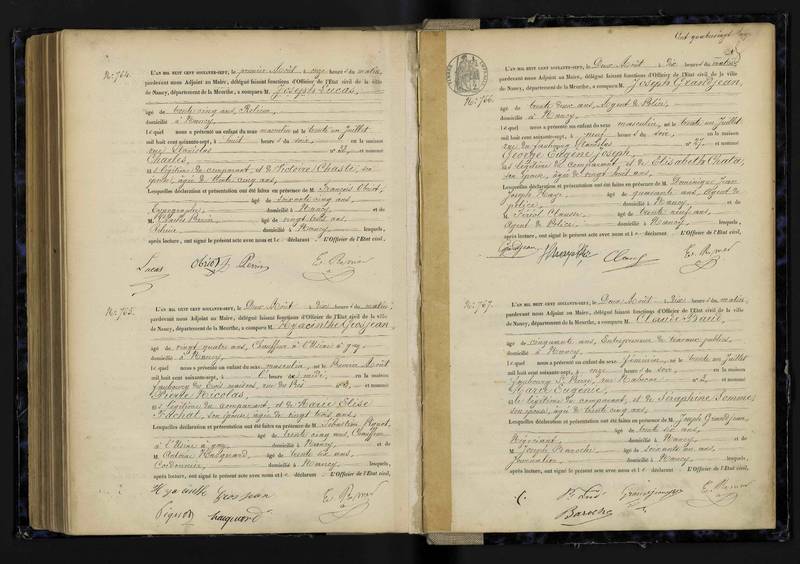 N.º 764.
L'AN MIL HUIT CENT SOIXANTE-SEPT, le premier Août à onze heures du matin,
pardevant nous Adjoint au Maire, délégué faisant fonctions d'Officier de l'Etat civil de la ville
de Nancy, département de la Meurthe, a comparu M. Joseph Lucas,
âgé de trente cinq ans, Relieur,
domicilié à Nancy,
lequel nous a présenté un enfant du sexe masculin né le trente un Juillet
mil huit cent soixante-sept, à huit heures du soir, en la maison
rue Stanislas n.º 22, et nommé
Charles,
fils légitime du comparant, et de Victoire Chasle, son
épouse, âgée de trente cinq ans,
Lesquelles déclaration et présentation ont été faites en présence de M. François Obriot,
Typographe, âgé de soixante cinq ans,
domicilié à Nancy et de
M. Charles Perrin âgé de vingt sept ans,
Relieur domicilié à Nancy, lesquels,
après lecture, ont signé le présent acte avec nous et le déclarant. L'Officier de l'Etat civil,
Lucas Obriot Perrin
N.º 765.
L'AN MIL HUIT CENT SOIXANTE-SEPT, le Deux Août à dix heures du matin,
pardevant nous Adjoint au Maire, délégué faisant fonctions d'Officier de l'Etat civil de la ville
de Nancy, département de la Meurthe, a comparu M. Hyacinthe Grosjean,
âgé de vingt quatre ans, Chauffeur à l'Usine à gaz,
domicilié à Nancy,
lequel nous a présenté un enfant du sexe masculin, né le Premier Août
mil huit cent soixante-sept, à heure de midi, en la maison
faubourg des trois maisons, rue des Prés et nommé
Pierre Nicolas,
fils légitime du comparant, et de Marie Elise
son épouse, âgée de vingt trois ans,
Lesquelles déclaration et présentation ont été faites en présence de M. Sébastien Pignot,
âgé de trente cinq ans, Chauffeur
à l'Usine à gaz, domicilié à Nancy et de
M. Victoire Haignard âgé de trente six ans,
Cordonnier, domicilié à Nancy, lesquels,
après lecture, ont signé le présent acte avec nous et le déclarant. L'Officier de l'Etat civil,
Hyacinthe Grosjean
Pignot
Cent quatrevingt
N.º 766.
L'AN MIL HUIT CENT SOIXANTE-SEPT, le Deux Août à Dix heures du matin,
pardevant nous Adjoint au Maire, délégué faisant fonctions d'Officier de l'Etat civil de la ville
de Nancy, département de la Meurthe, a comparu M. Joseph Grandjean,
âgé de trente deux ans, Agent de Police,
domicilié à Nancy,
lequel nous a présenté un enfant du sexe masculin, né le trente un Juillet
mil huit cent soixante-sept, à neuf heures du soir, en la maison
rue du faubourg Stanislas n.º 27, et nommé
George Eugène Joseph,
fils légitime du comparant, et de Elisabeth
son épouse, âgée de vingt huit ans,
Lesquelles déclaration et présentation ont été faites en présence de M. Dominique Jean
Joseph âgé de quarante ans, Agent de
police, domicilié à Nancy et de
M. âgé de trente neuf ans,
Agent de Police, domicilié à Nancy, lesquels,
après lecture, ont signé le présent acte avec nous et le déclarant. L'Officier de l'Etat civil,
Grandjean
N.º 767.
L'AN MIL HUIT CENT SOIXANTE-SEPT, le Deux Août à Dix heures du matin,
pardevant nous Adjoint au Maire, délégué faisant fonctions d'Officier de l'Etat civil de la ville
de Nancy, département de la Meurthe, a comparu M. Claude
âgé de cinquante ans, Entrepreneur de travaux publics,
domicilié à Nancy,
lequel nous a présenté un enfant du sexe féminin, né le trente un Juillet
mil huit cent soixante-sept, à onze heures du soir, en la maison
faubourg St Pierre, rue n.º 2, et nommé
Marie Eugénie,
fille légitime du comparant, et de Séraphine Somme,
son épouse, âgée de trente cinq ans,
Lesquelles déclaration et présentation ont été faites en présence de M. Joseph Grandjean,
âgé de trente six ans,
Négociant, domicilié à Nancy et de
M. Joseph Baroche âgé de soixante un ans,
domicilié à Nancy, lesquels,
après lecture, ont signé le présent acte avec nous et le déclarant. L'Officier de l'Etat civil,
Baroche